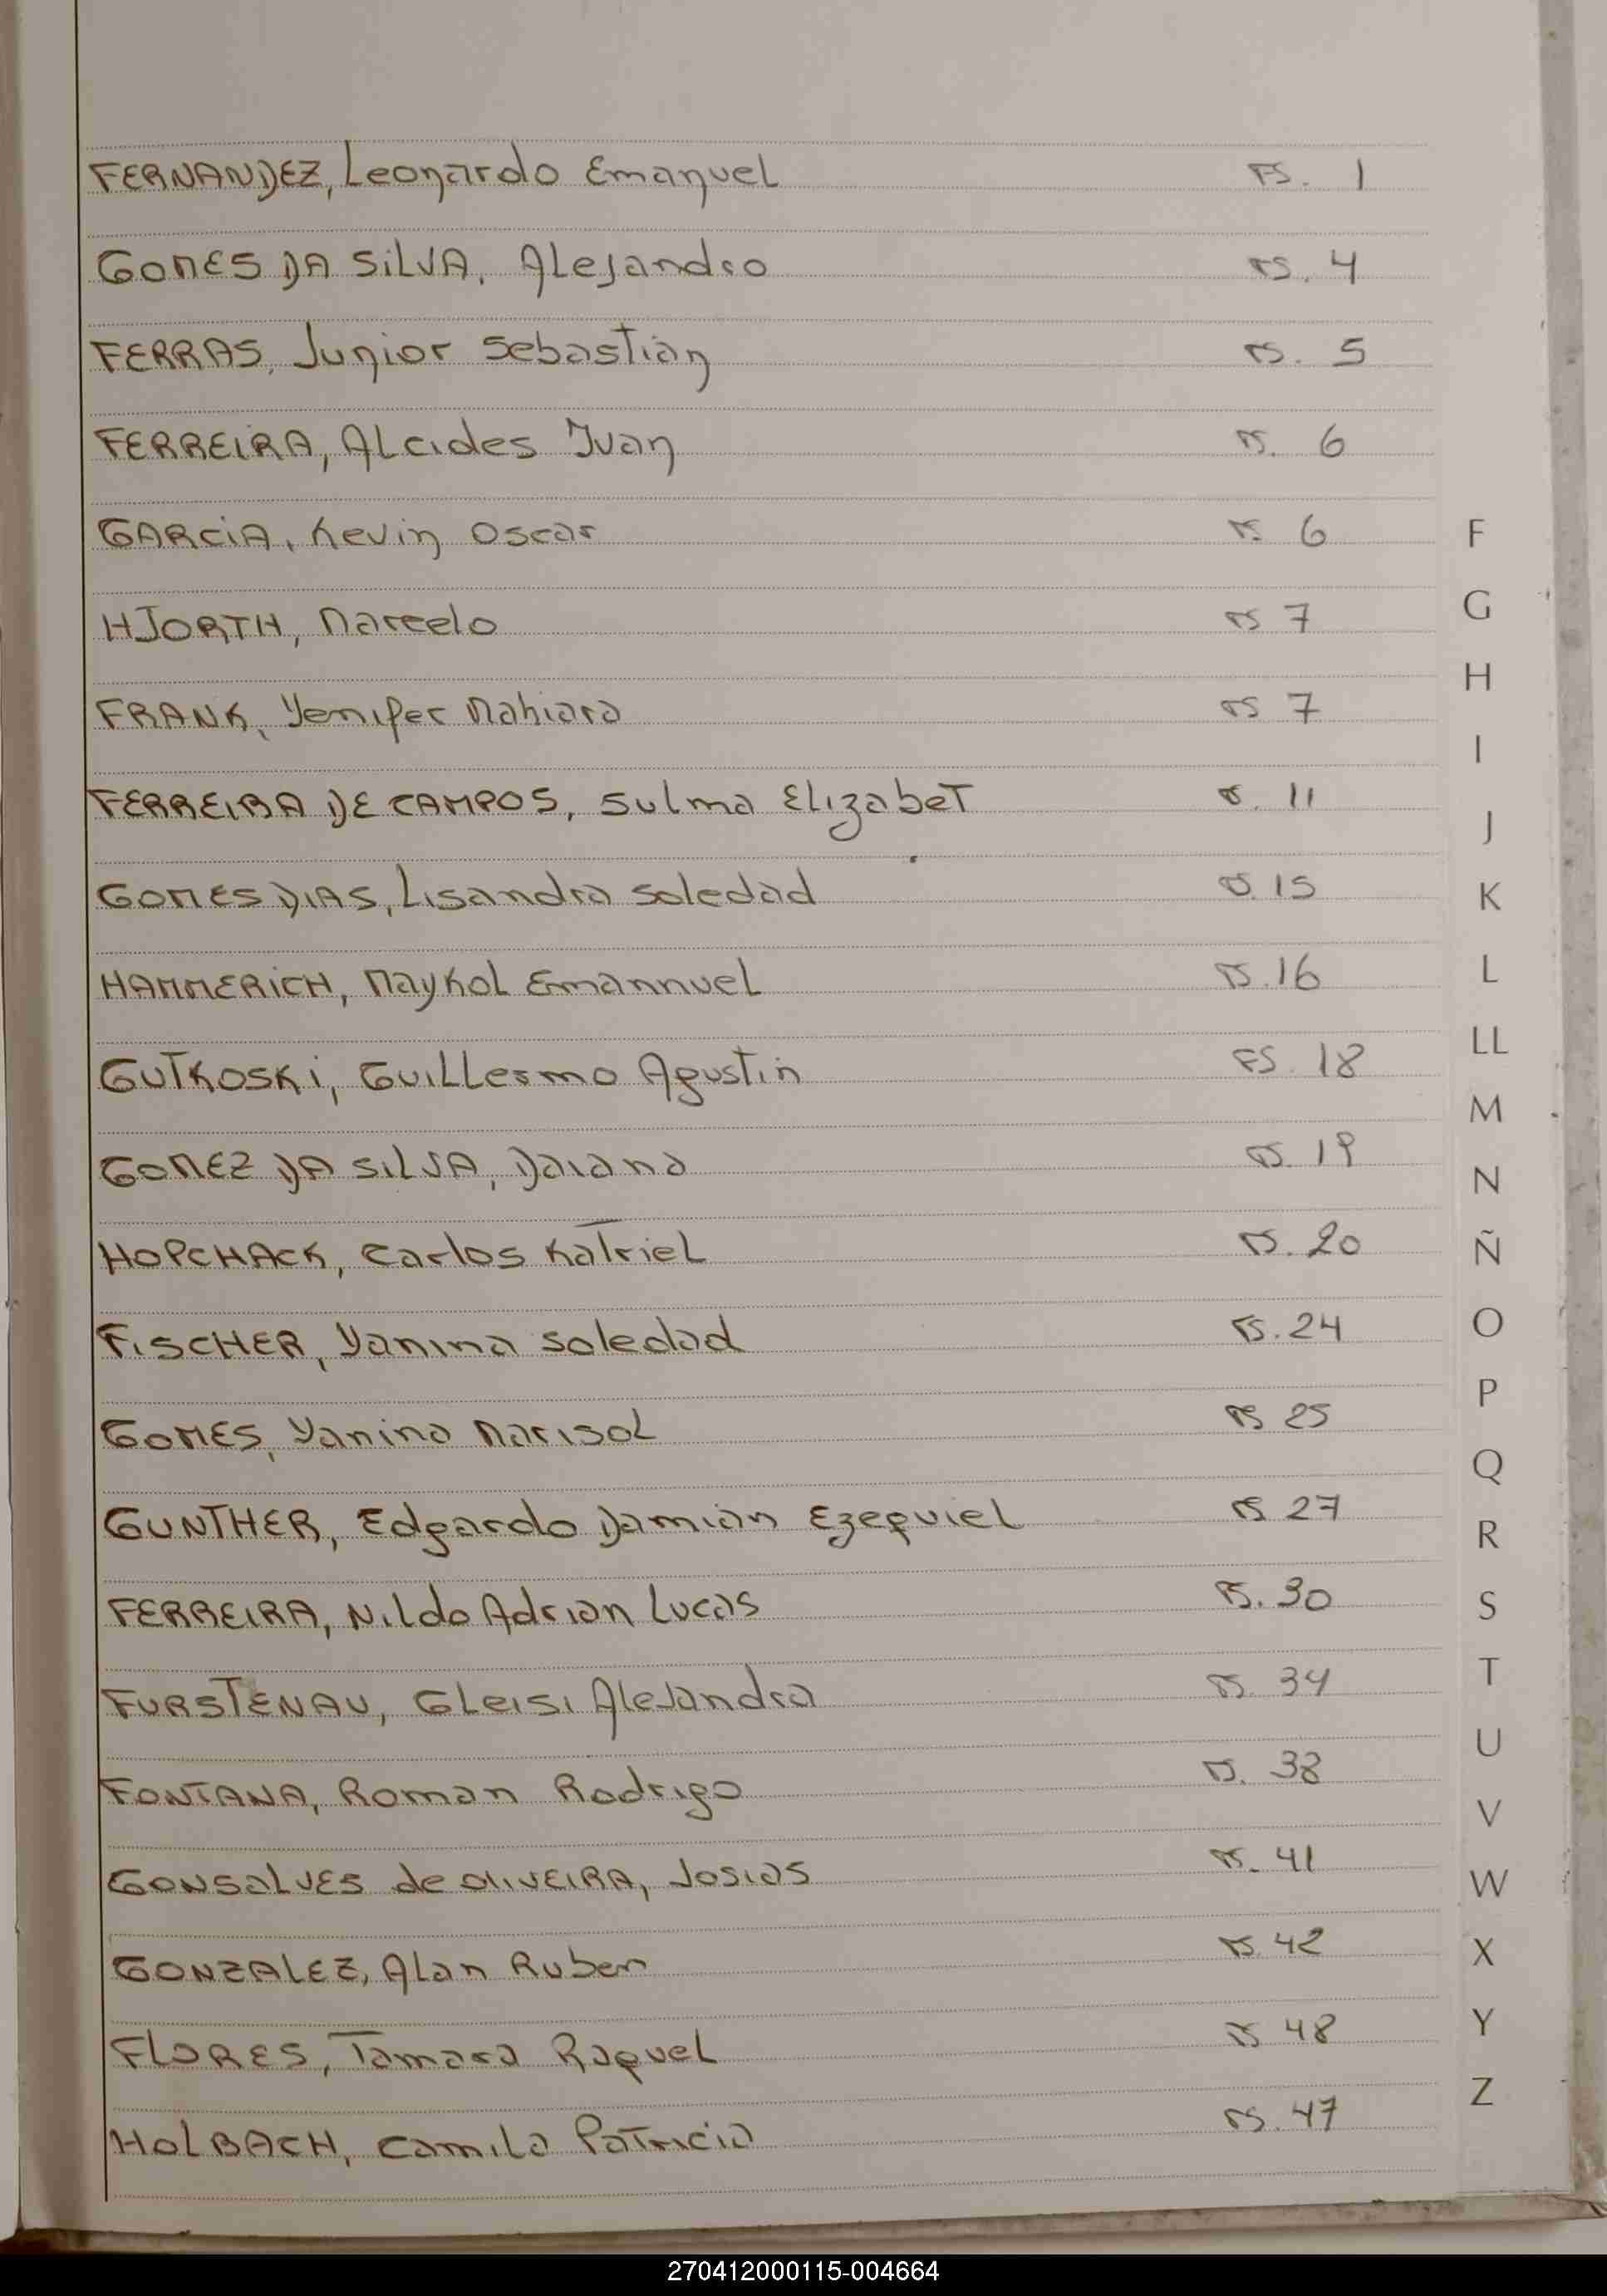 FERNANDEZ, Leonardo Emanuel FS. 1
GOMES DA SiLVA, Alejandro FS. 4
FERRAS, Junior Sebastián FS. 5
FERREIRA, Alcides Ivan FS. 6
GARCiA, Kevin Oscar FS 6
HJORTH, Marcelo FS 7
FRANK, Yenifer Nahiara FS 7
FERREIRA DE CAMPOS, Sulma Elizabet FS. 11
GOMES DIAS, Lisandra Soledad FS. 15
HAMMERICH, Maykol Emannuel FS. 16
GUTKOSKi, Guillermo Agustin FS. 18
GOMEZ DA SILVA, Daiana FS. 19
HOPCHACK, Carlos Katriel FS. 20
FiSCHER, Yanina Soledad FS. 24
GOMES, Yanina Marisol FS 25
GUNTHER, Edgardo Damián Ezequiel FS 27
FERREIRA, Nildo Adrian Lucas FS. 30
FURSTENAU, Gleisi Alejandra FS. 34
FONTANA, Roman Rodrigo FS. 38
GONSALVES de OLIVEIRA, Josias FS. 41
GONZALEZ, Alan Ruben FS. 42
FLORES, Tamara Raquel FS 48
HOLBACH, Camila Patricia FS. 47
F
G
H
I
J
K
L
LL
M
N
Ñ
O
P
Q
R
S
T
U
V
W
X
Y
Z
270412000115-004664